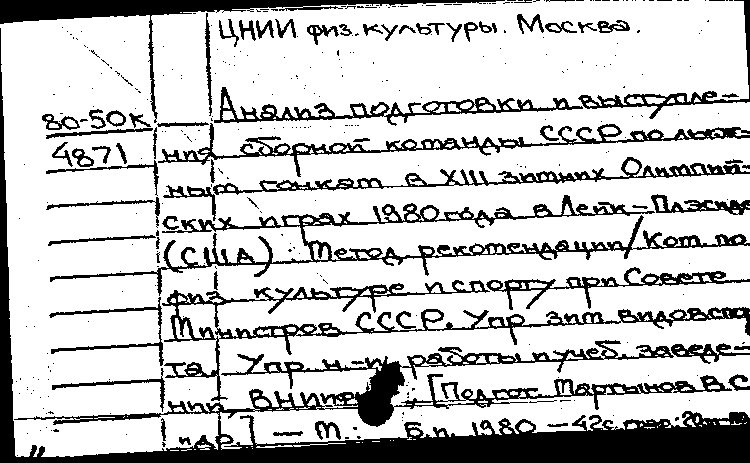 ЦНИИ физ.культуры. Москва.
80-50к Анализ подготовки и выступле-
4871 ния сборной команды СССР по лыж-
ным гонкам в XIII зимних Олимпий-
ских играх 1980 года в Лейк-Плэсиде
(США): Метод рекомендации/Ком. по
физ культуре и спорту при Совете
Министров СССР. Упр зим видов спор
та. Упр. н.-и. работы и учеб. заведе-
ний, [Подгот. Мартынов В.С
и др.] — М.: Б.и. 1980 — 42с